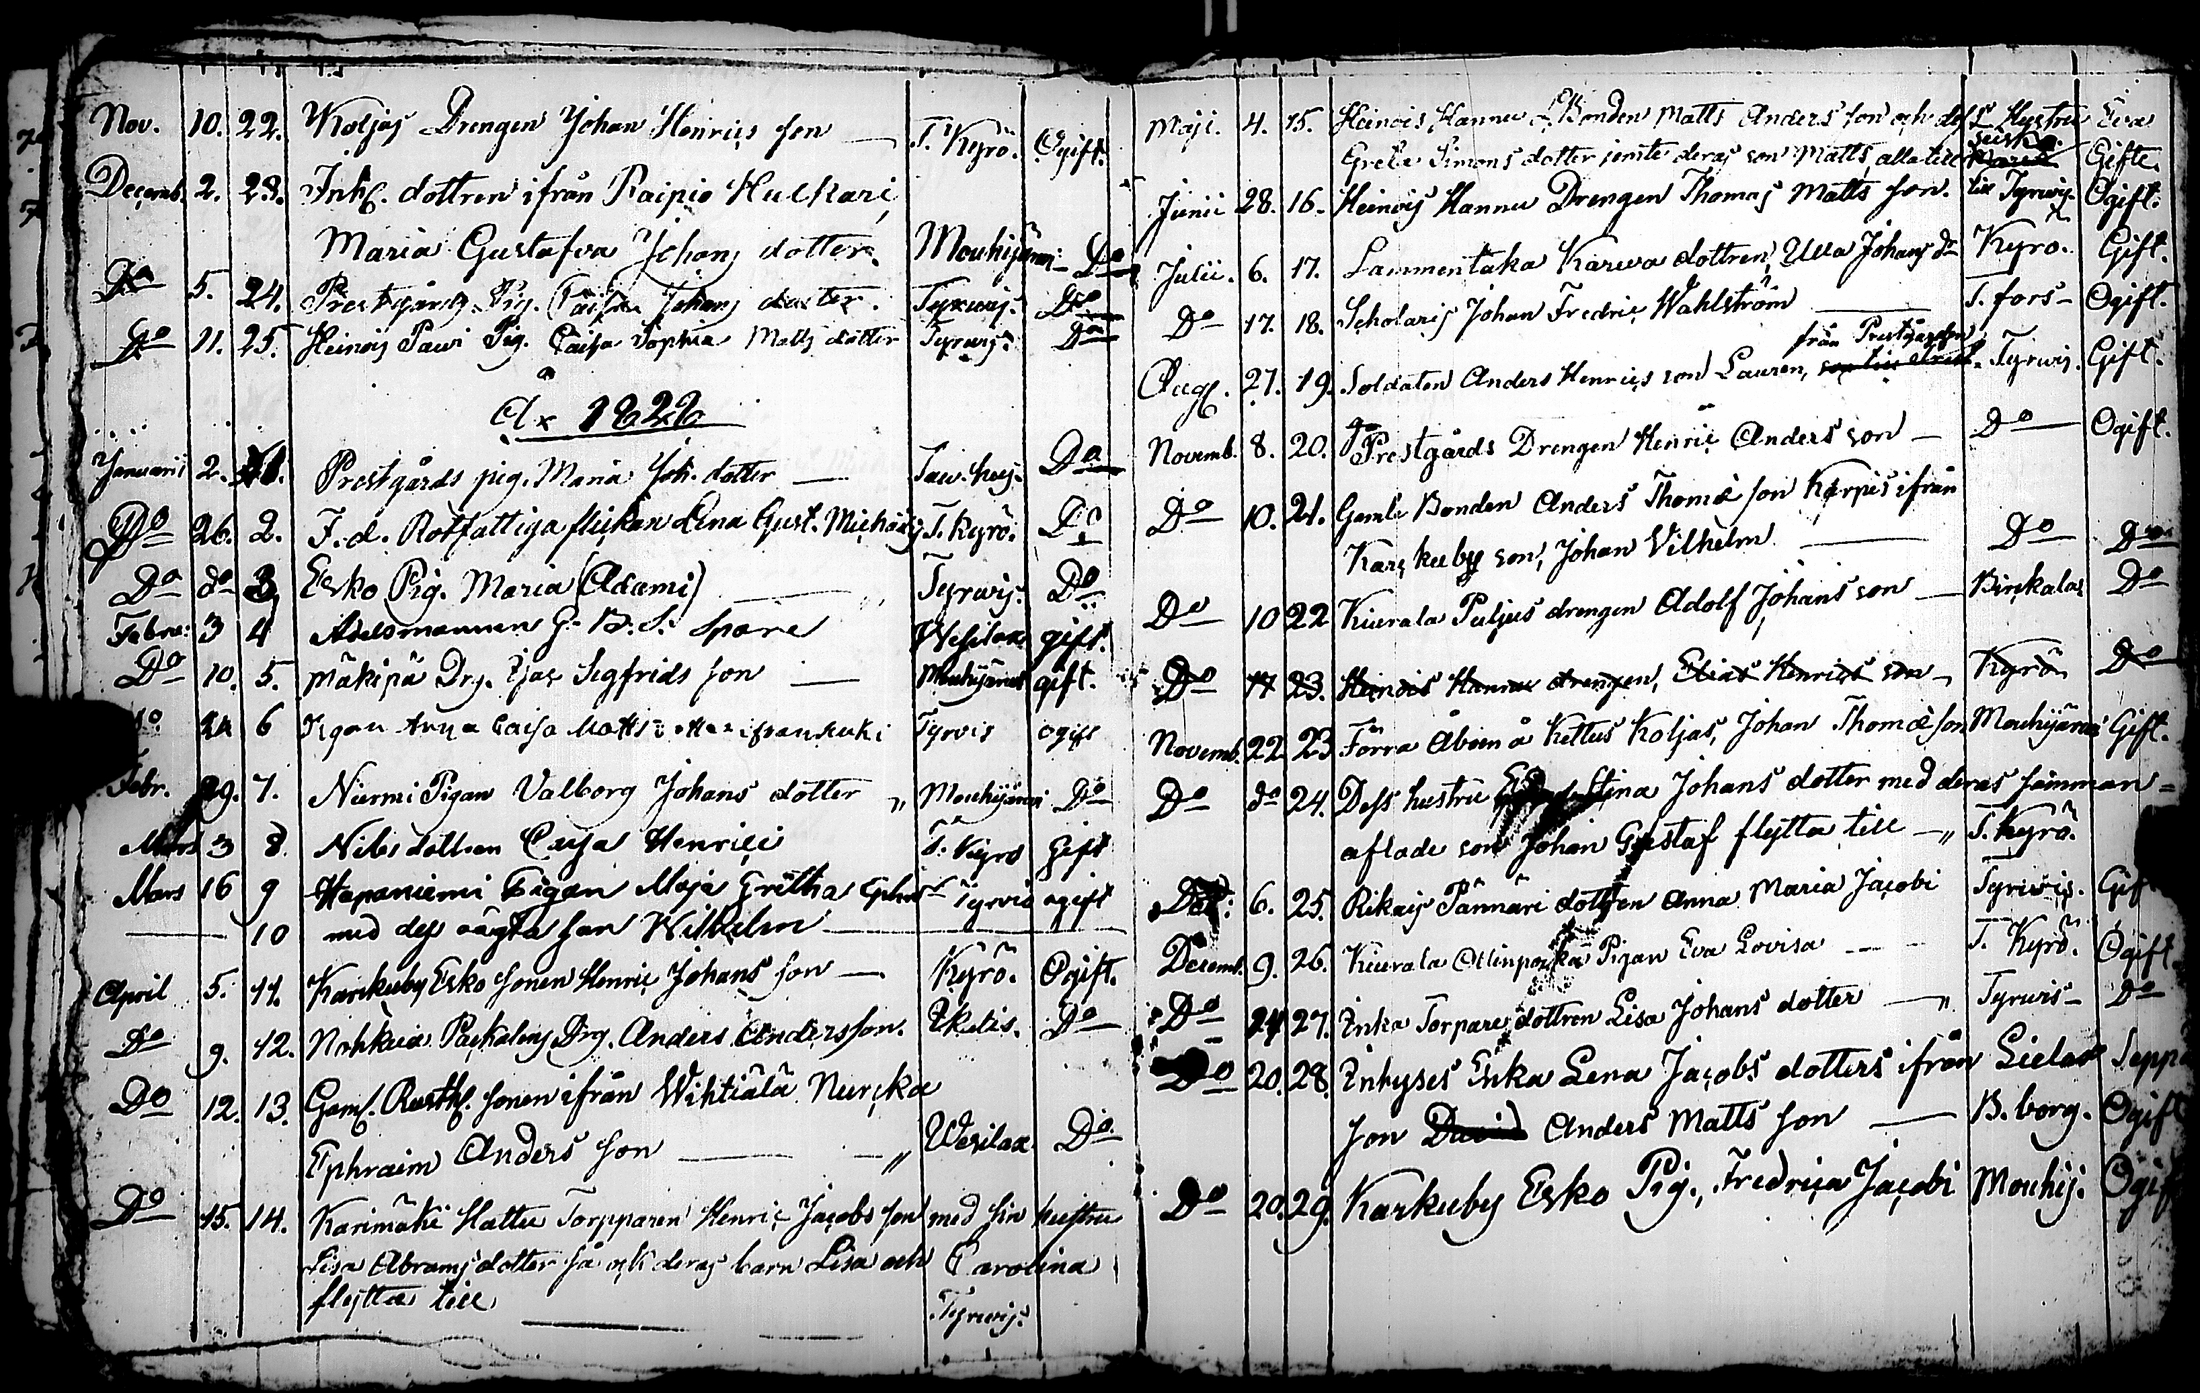 Nov. 10. 22. Koljas Drengen Johan Henrics son — T. Kyrö. Ogift.
Decemb. 2. 23. Inh. dottren ifrån Raipio Huckari
Maria Gustafva Johans dotter. Mouhijärvi Do
Do 5. 24. Prestgårds Pig. Caisa Johans dotter. Tyrwis. Do
Do 11. 25. Heinois Pawi Pig. Caisa Sophia Matts dotter Tyrwis. Do
Ao 1822
Januarii 2. 1. Prestgårds pig. Maria Joh. dotter — Taw. Do
Do 26. 2. F. d. Rotfattiga flickan Lena Gust. T. Kyrö. Do
Do do 3. Esko Pig. Maria (Adami) — Tyrwis. Do
Febru: 3 4 Adelsmannen G. B. S. Spare Wesilax gift.
Do 10. 5. Mäkipä Drg. Isac Sigfrids son — Mouhijärvi gift.
6 Pigan Anna Caisa Matts dotter ifrån Kuki Tyrvis ogift
Febr. 29. 7. Niermi Pigan Valborg Johans dotter „ Mouhijärvi Do
Mars 3 8. Nils dottren Caisa Henrici T. Kyro Gift
Mars 16 9 Haapaniemi Pigan Maja Gretha Tyrvis ogift
10 med dess oägta son Wilhelm —
April 5. 11. Karckuby Esko sonen Henric Johans son — Kyrö. Ogift.
Do 9. 12. Nohkua Drg. Anders Anders son. Ikalis. Do
Do 12. 13. Gaml. Rusth. sonen ifrån Wihtiälä Nurcka
Ephraim Anders son — „ Wesilax. Do
Do 15. 14. Karimäki Hattu Torpparen Henric Jacobs son med sin hustru
Lisa Abrams dotter så ock deras barn Lisa och Carolina
flytta till Tyrwis.
Maji. 4. 15. Heinois Hannu Bonden Matts Anders son och dess Hustru Eva
Greta Simons dotter jemte deras son Matts, alla till Gifte.
Junii 28. 16. Heinois Hannu Drengen Thomas Matts son. till Tyrwis. Ogift.
Julii. 6. 17. Lammentaka Karwa dottren, Ulla Johans dr Kyrö. Gift.
Do 17. 18. Scholaris Johan Fredric Wahlström — T. fors — Ogift.
från Prestgården
Aug. 27. 19. Soldaten Anders Henrics son Lauren, Tyrwis. Gift.
Novemb. 8. 20. Prestgårds Drengen Henric Anders son — Do Ogift.
Do 10. 21. Gamla Bonden Anders Thomæ son Kerpis ifrån
Karckuby son, Johan Vilhelm — Do Do
Do 10 22 Kiurala Puljus drengen Adolf Johans son — Birckala Do
Do 17 23. Heinois Hannu drengen, Elias Henrics son — Kyrö Do
Novemb. 22. 23 Förra Åboen å Kettus Koljas, Johan Thomæ son Mouhijärvi Gift.
Do do 24. Dess hustru Stina Johans dotter med deras samman =
aflade son Johan Gustaf flytta till — „ T. Kyrö.
6. 25. Rikais Pännäri dottren Anna Maria Jacobi Tyrwis. Gift
Decemb. 9. 26. Kiurala Ollinpoika Pigan Eva Lovisa — T. Kyrö. Ogift
Do 24 27. Enka Torpare dottren Lisa Johans dotter — „ Tyrwis — Do
Do 20. 28. Inhyses Enka Lena Jacobs dotters ifrån Lielax Seppä
son David Anders Matts son — B. borg. Ogift
Do 20. 29. Karkuby Esko Pig., Fredrica Jacobi Mouhij. Ogift